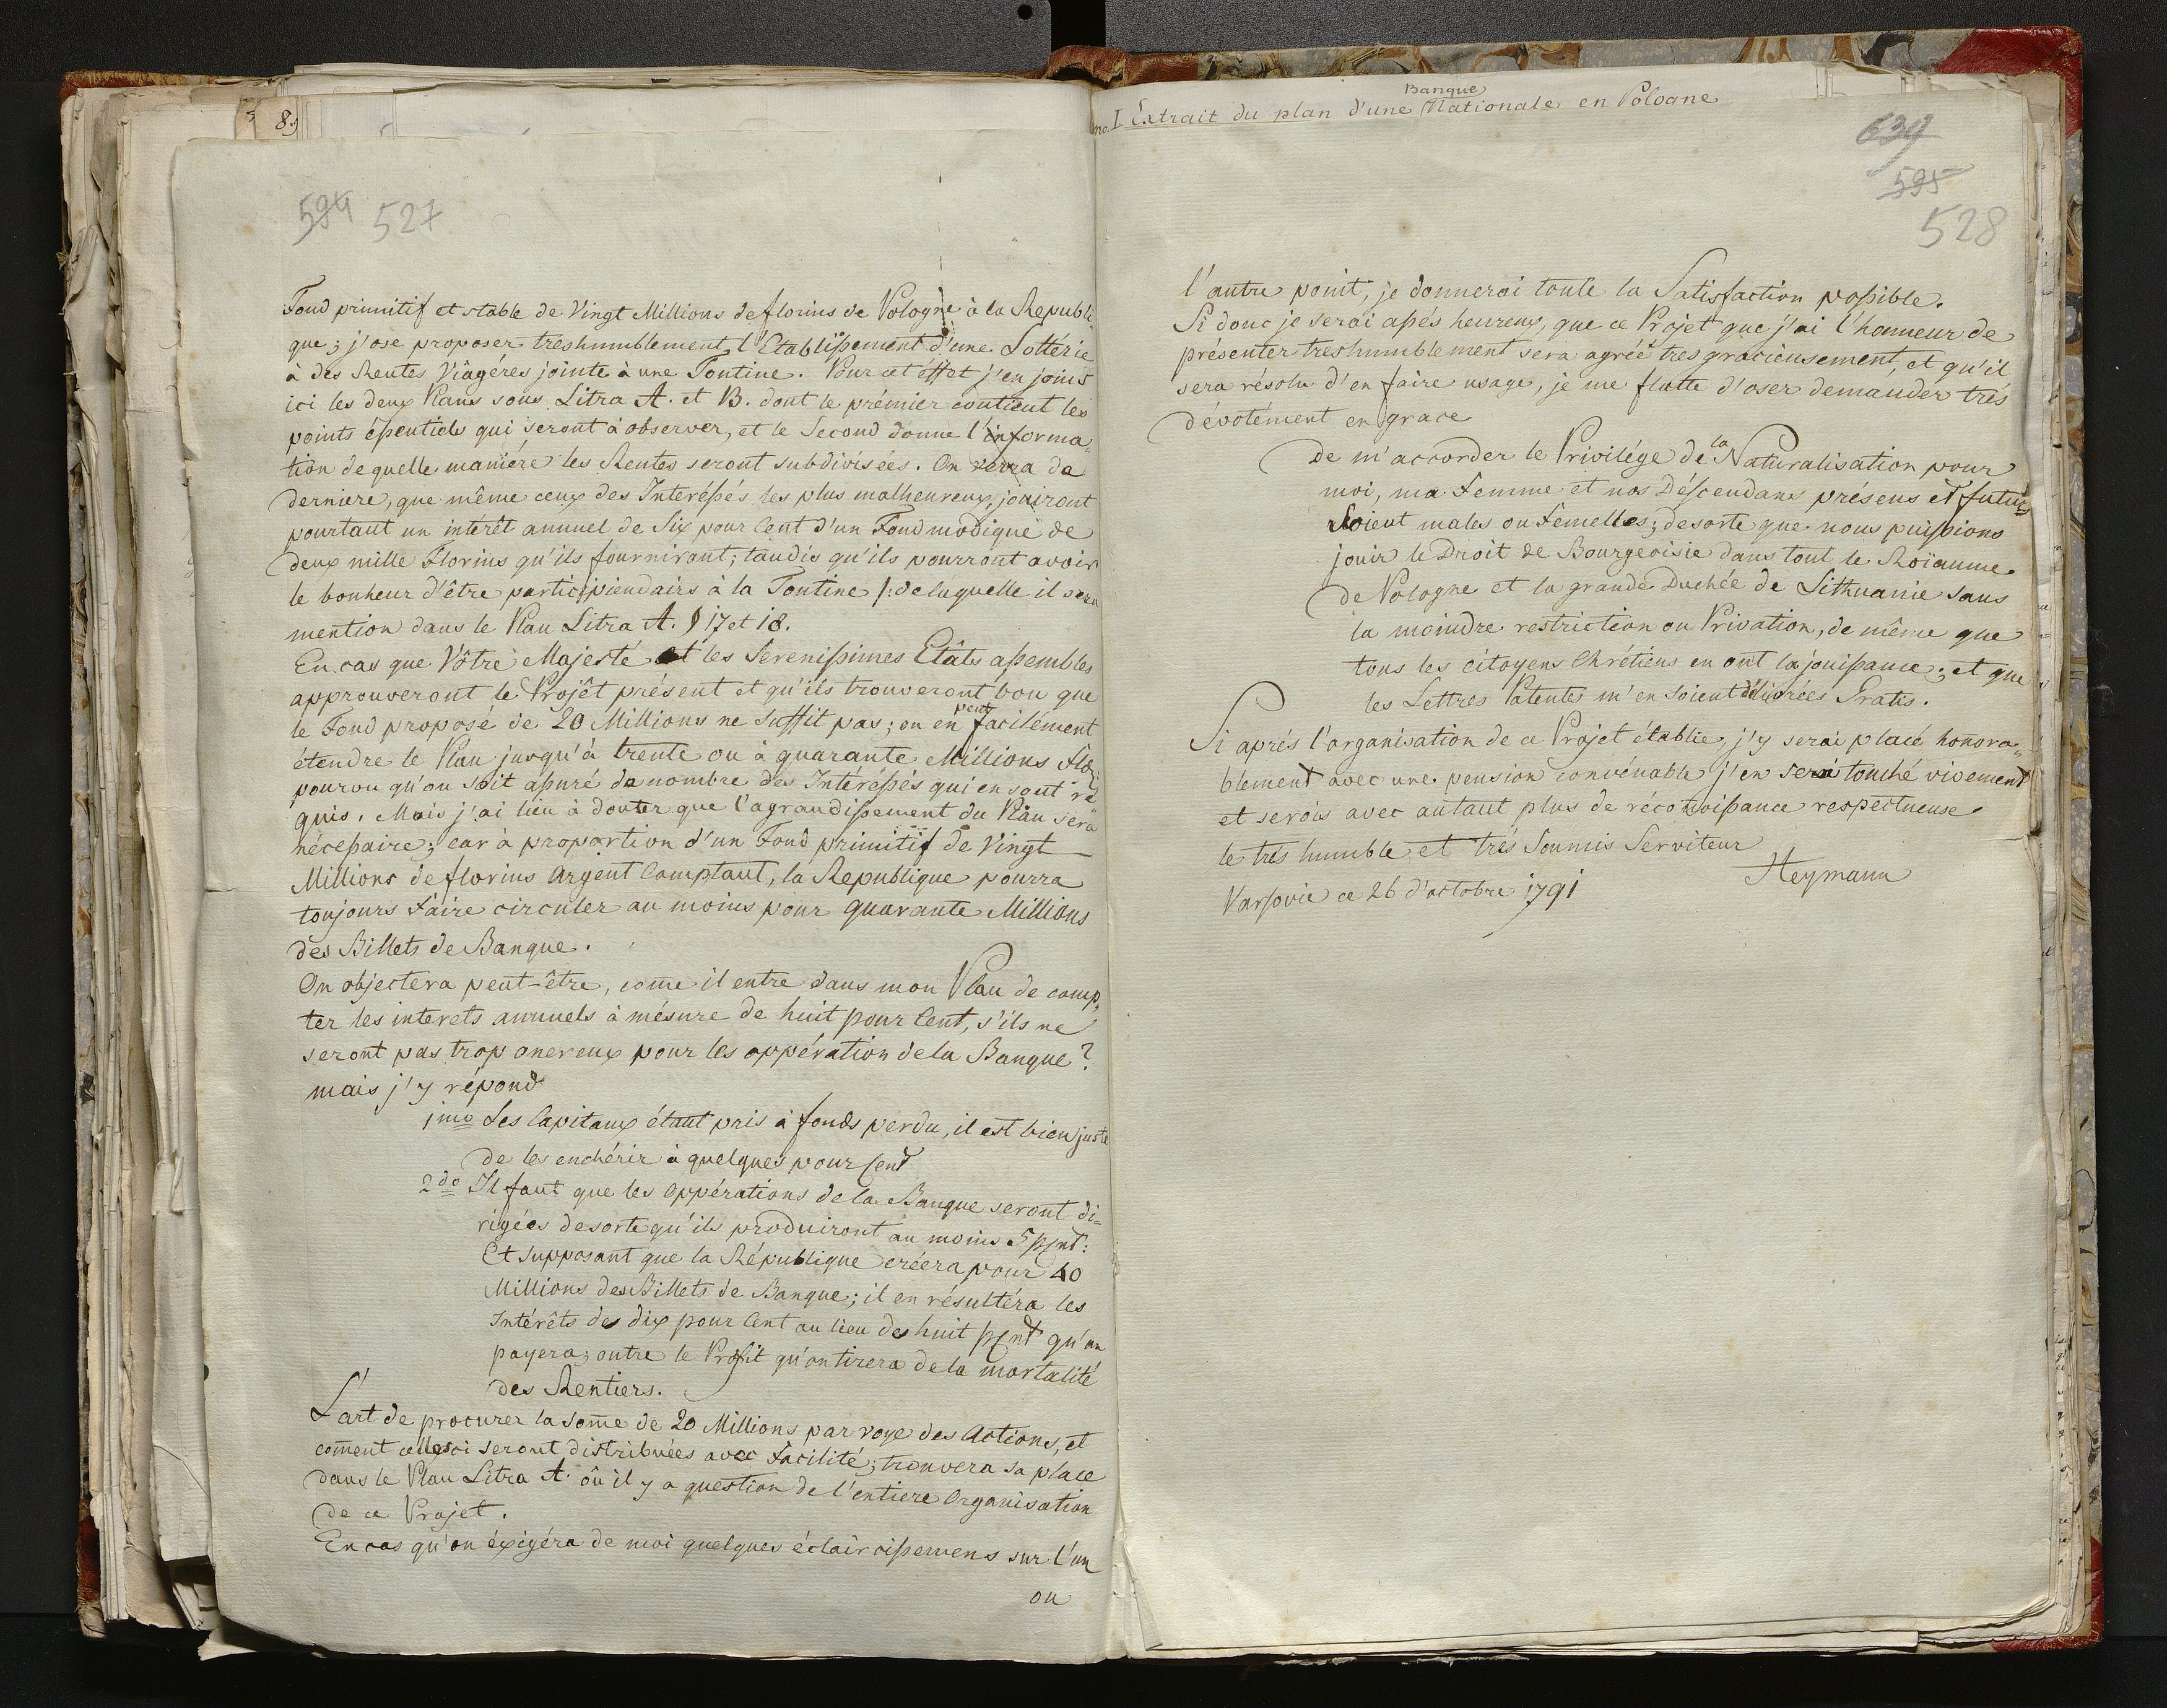 8.)
594 527
Fond primitif et stable de Vingt Millions de florins de Pologne à la Republi„
que; j'ose proposer treshumblement l'Etablißement d'une Lotterie
à des Rentes Viagéres jointe à une Tontine. Pour cet effet j'en joins
ici les deux Plans sous Litra A. et B. dont le prémier contient les
points éßentiels qui seront à observer, et le Second donne l'informa„
tion de quelle maniére les Rentes seront subdivisées. On verra da
derniere, que même ceux des Interéßés les plus malheureux, jouiront
pourtant un intérêt annuel de Six pour Cent d'un Fond modique de
deux mille Florins qu'ils fourniront; tandis qu'ils pourront avoir
le bonheur d'être participiendairs à la Tontine /: de laquelle il sera
mention dans le Plan Litra A. § 17 et 18.
En cas que Vôtre Majesté et les Sereniβimes Etâts aßembles
approuveront le Projêt présent et qu'ils trouveront bon que
le Fond proposé de 20 Millions ne suffit pas; on en peut facilément
étendre le Plan jusqu'à trente ou à quarante Millions
pourvu qu'on soit aßuré du nombre des Intéréßés qui en sont re„
quis. Mais j'ai lieu à douter que l'agrandißement du Plan sera
néceßaire; car à proportion d'un Fond primitif de Vingt
Millions de florins Argent Comptant, la Republique pourra
toujours faire circuler au moins pour quarante Millions
des Billets de Banque.
On objectera peut-être, com̄e il entre dans mon Plan de comp„
ter les interets annuels à mésure de huit pour Cent, s'ils ne
seront pas trop onereux pour les oppération de la Banque?
mais j'y répond
1mo Les Capitaux étant pris à fonds perdu, il est bien juste
de les enchérir à quelques pour Cent
2do Il faut que les oppérations de la Banque seront di=
rigées desorte qu'ils produiront au moins 5 pCnt:
Et supposant que la République créera pour 40
Millions des Billets de Banque; il en résultéra les
Intérêts de dix pour Cent au lieu des huit pCnt qu'on
payera; outre le Profit qu'on tirera de la mortalité
des Rentiers.
L'art de procurer la som̄e de 20 Millions par voye des Actions, et
com̄ent cellesci seront distribuées avec Facilité; trouvera sa place
dans le Plan Litra A. où il y a question de l'entiere Organisation
de ce Projet.
En cas qu'on éxigéra de moi quelques éclaircißemens sur l'un
ou
no. I Extrait du plan d'une Banque Nationale en Pologne
639
595
528
l'autre point, je donnerai toute la Satisfaction poßible.
Si donc je serai aßés heureux, que ce Projet que j'ai l'honneur de
présenter treshumblement sera agréé tres gracieusement, et qu'il
sera résolu d'en faire usage, je me flatte d'oser demander trés
dévotément en grace
De m'accorder le Privilége de la Naturalisation pour
moi, ma Femme et nos Déscendans présens et futurs
Soient males ou Femelles; desorte que nous puißions
jouir le Droit de Bourgeoisie dans tout le Roïaume
de Pologne et la grande Duchée de Lithuanie sans
la moindre restriction ou Privation, de même que
tous les citoyens Chrétiens en ont la jouißance; et que
les Lettres Patentes m'en soient délivrées Gratis.
Si aprés l'organisation de ce Projet établie, j'y serai placé honora„
blement avec une pension convénable, j'en serai touché vivement
et serois avec autant plus de réconoißance respectueuse
le trés humble et trés Soumis Serviteur
Heymann
Varsovie ce 26 d'octobre 1791